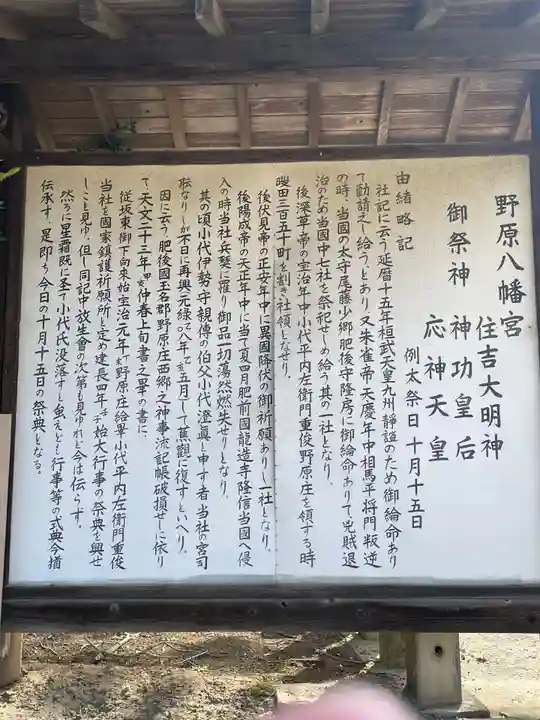 野原八幡宮
住吉大明神
御祭神 神功皇后
応神天皇
例大祭日十月十五日
由緒略記
社記に云う延暦十五年桓武天皇九州静謐のため御綸命あり
て勧請えし給うとあり又朱雀帝天慶年中相馬平将門叛逆
の時、当国の太守尾藤少郷肥後守隆房に御綸命ありて兇賊退
治のため当國中七社を祭祀せしめ給う其の一社となり、
後深草帝の宝治年中小代平内左衛門重俊野原庄を領する時
田三百五十町を割き社領となせり。
後伏見帝の正安年中に異國降伏の御祈願ありし一社となり。
後陽成帝の天正年中に当て夏四月肥前國龍造寺隆信当國へ侵
入の時当社兵燹に罹り御品一切蕩然燃失せりとなり、
其の頃小代伊勢守親傳の伯父小代澄眞と申す者当社の宮司
なりしが不日に再興元緑八年五月して旧觀に復すといへり。
因に云う肥後國玉名郡野原庄西郷之神事流記帳破損せしに依り
て天文二十三年仲春上旬書之畢の書に
従坂東御下向来始宝治元年野原庄給畢小代平内左衛門重俊
当社を國家鎮護祈願所と定め建長四年始大行事の祭典を興せ
しこと見ゆ、但し同記中放生會の次第も見ゆれど今は伝らず。
然るに星霜既に圣て小代氏没落すと虽ども行事等の式典今猶
伝承す、是即ち今日の十月十五日の祭典となる。